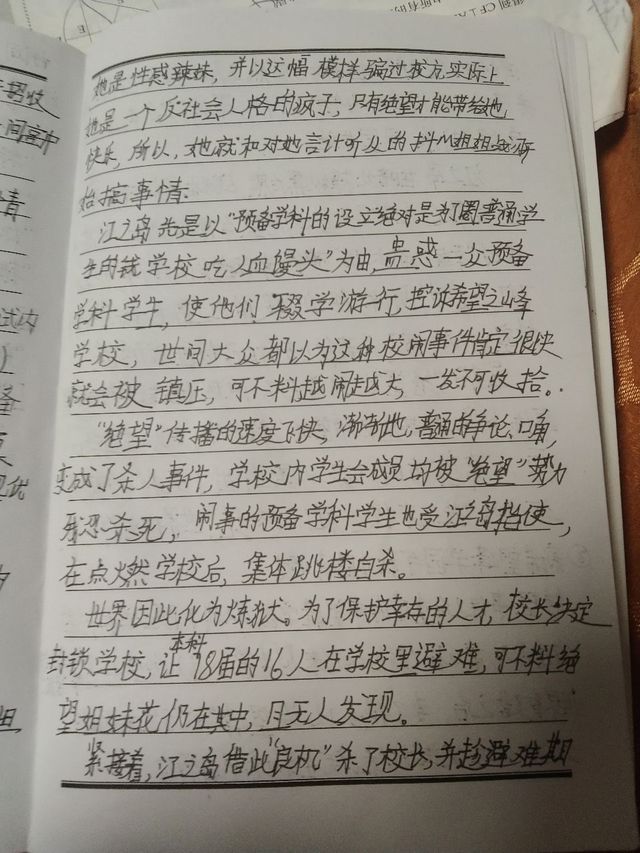 她是性感辣妹，并以这幅模样骗过校方，实际上
她是一个反社会人格的疯子，只有绝望才能带给她
快乐，所以，她就和对她言计听从的抖M姐姐战刃
始搞事情.
江之岛先是以“预备学科的设立绝对是为了圈普通学
生的钱，学校吃人血馒头”为由，蛊惑一众预备
学科学生，使他们辍学游行，控诉希望之峰
学校，世间大众都以为这种校闹事件肯定很快
就会被镇压，可不料越闹越大，一发不可收拾。
“绝望”传播的速度飞快，渐渐地，普通的争论、口角，
变成了杀人事件，学校内学生会成员均被“绝望”势力
残忍杀死，闹事的预备学科学生也受江之岛指使，
在点燃学校后，集体跳楼自杀。
世界因此化为炼狱。为了保护幸存的人才，校长决定
封锁学校，让本科78届的16人在学校里避难，可不料绝
望姐妹花仍在其中，且无人发现。
紧接着，江之岛借此“良机”杀了校长，并趁避难期